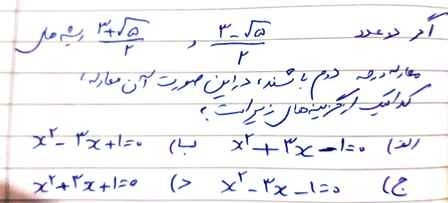 اگر دو عدد (۳-√۵)/۲ , (۳+√۵)/۲ ریشه های
معادله درجه دوم باشند، در این صورت آن معادله،
کدامیک از گزینه های زیر است؟
الف) x²+۳x-1=0 ب) x²-۳x+1=0
ج) x²-۳x-1=0 د) x²+۳x+1=0